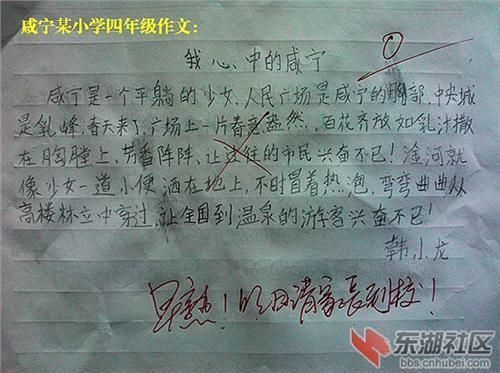 咸宁某小学四年级作文：
我心中的咸宁
咸宁是一个平躺的少女、人民广场是咸宁的胸部、中央城
是乳峰、春天来了、广场上一片春意盎然、百花齐放如乳汁撒
在胸膛上、芳香阵阵、让过往的市民兴奋不已！淦河就
像少女一道小便洒在地上、不时冒着热泡、弯弯曲曲从
高楼林立中穿过、让全国到温泉的游客兴奋不已！
韩小龙
早熟！明日请家长到校！
东湖社区
bbs.cnhubei.com